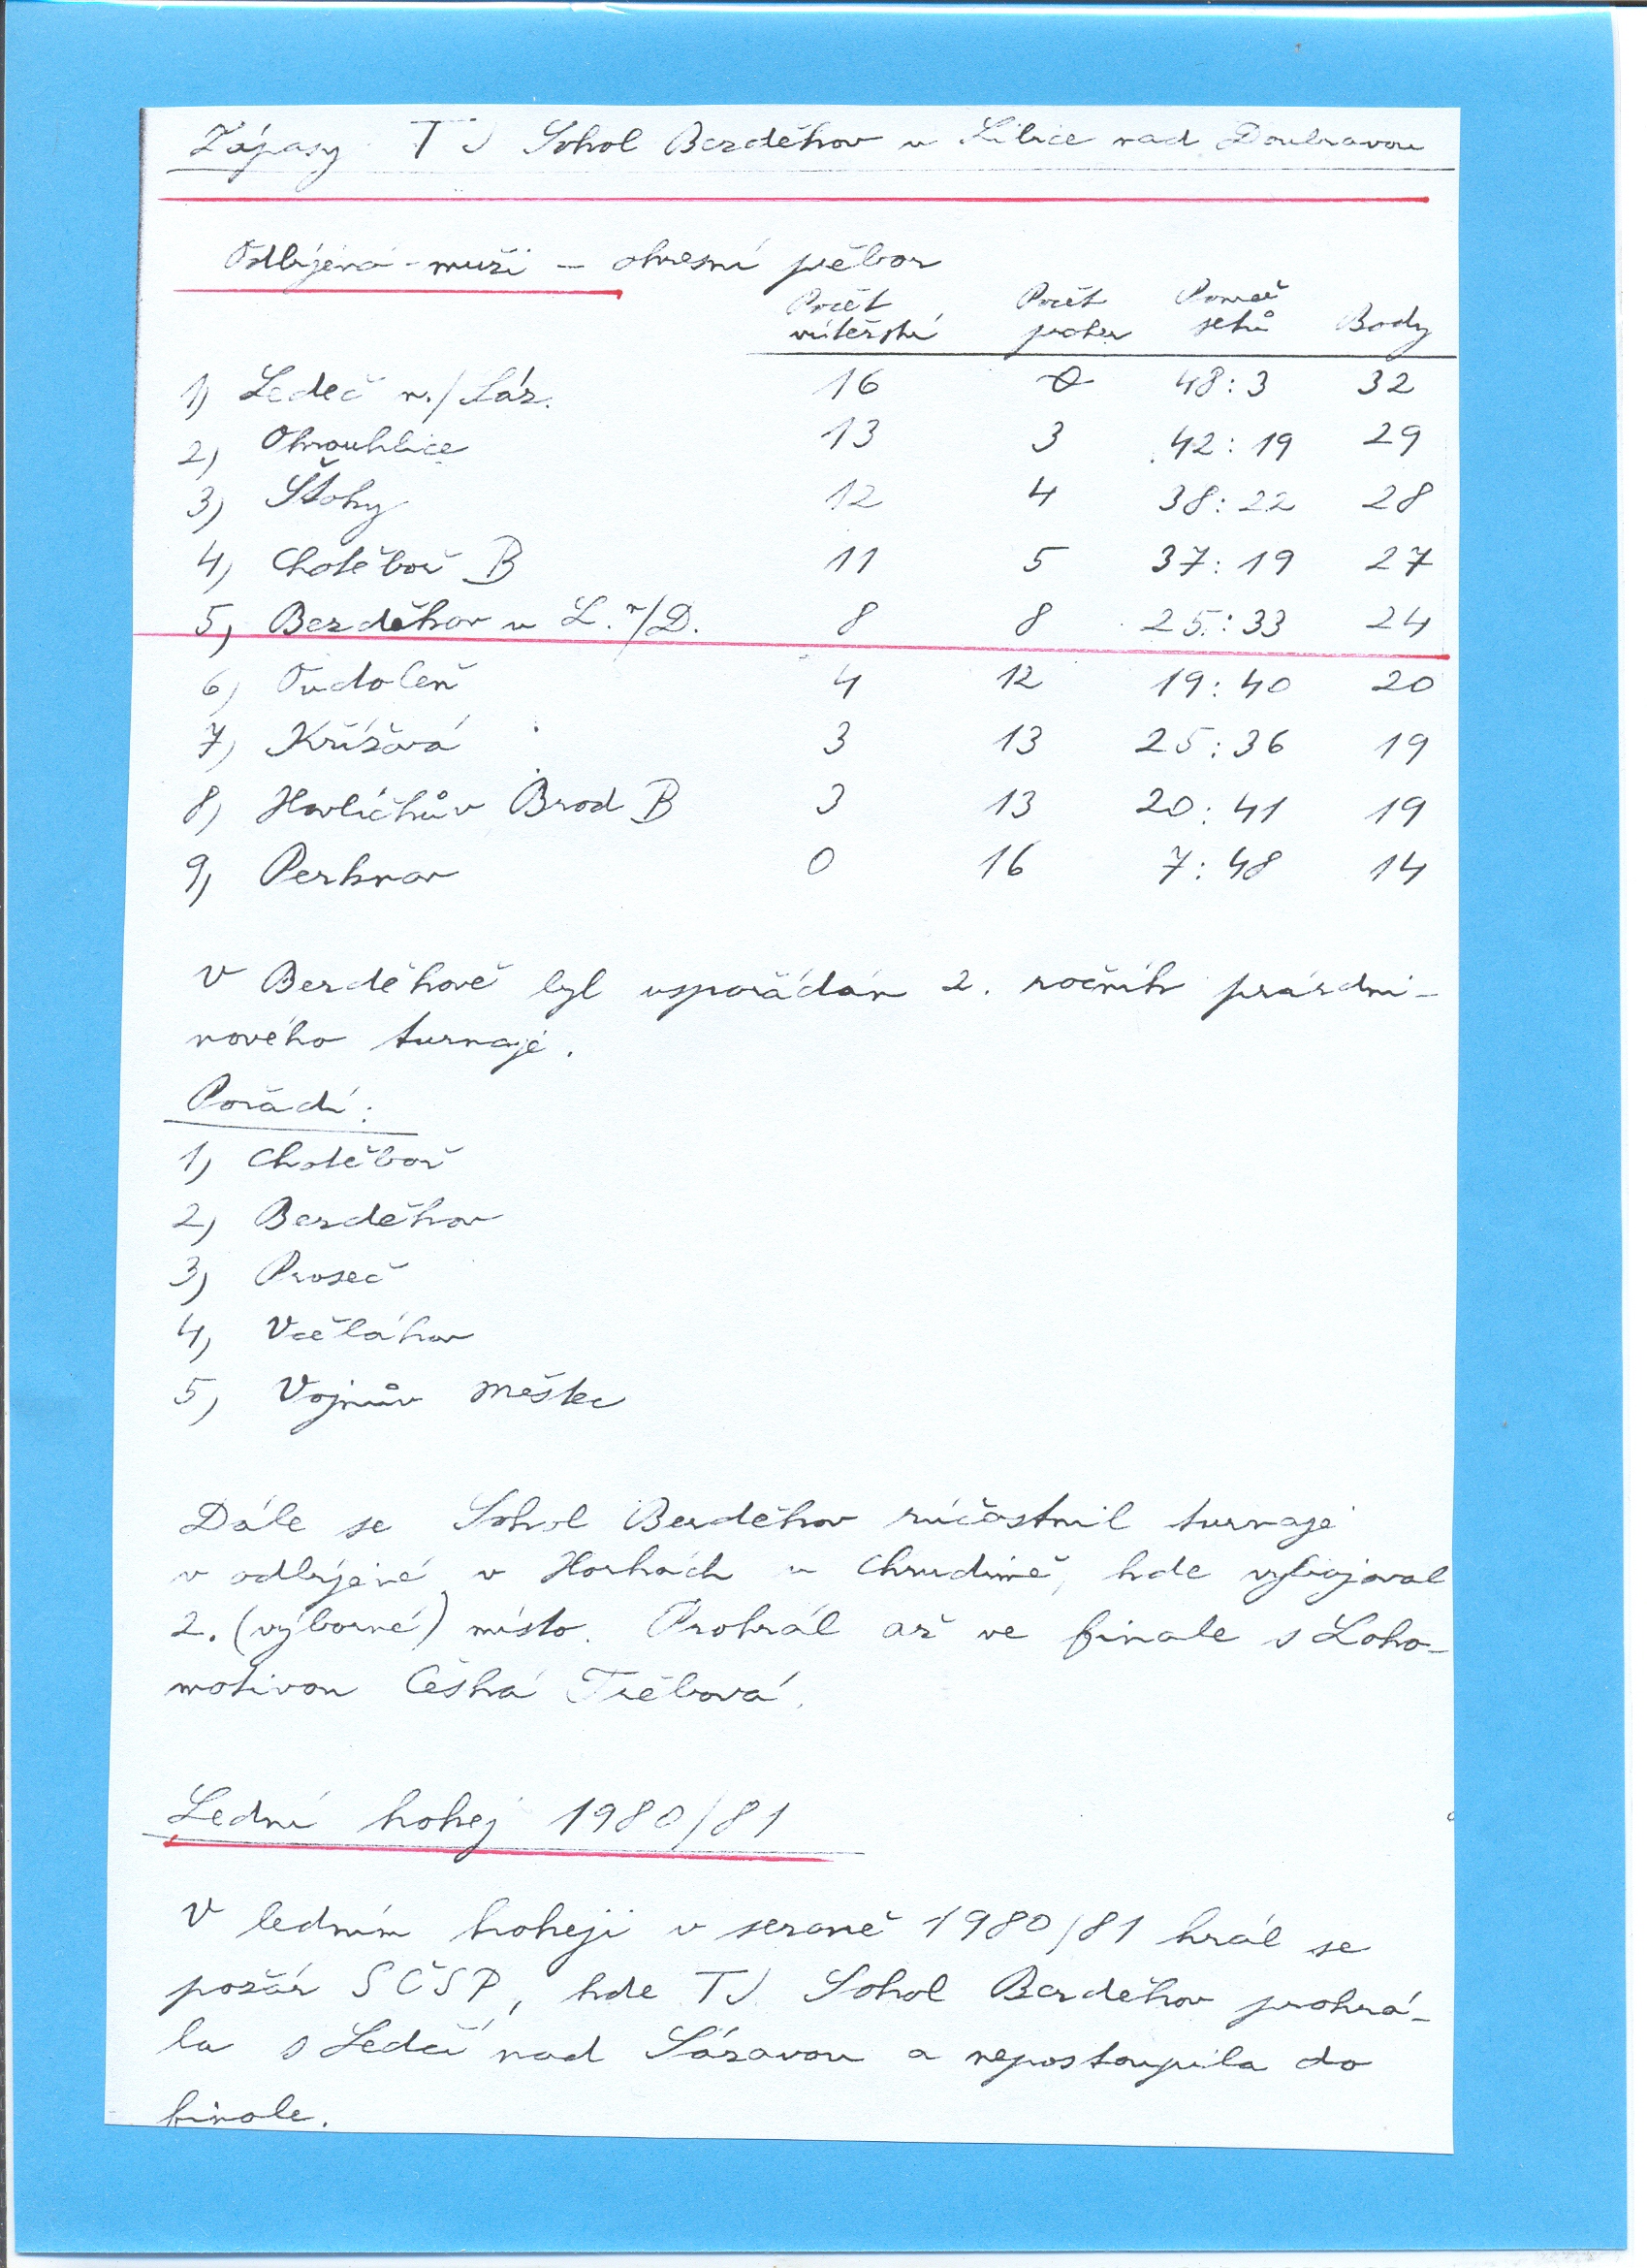 Zápasy TJ Sokol Bezděkov u Libice nad Doubravou
Odbíjená - muži - okresní přebor
Počet vítězství Počet proher Poměr setů Body
1) Ledeč n./Sáz. 16 0 48:3 32
2) Okrouhlice 13 3 42:19 29
3) Štoky 12 4 38:22 28
4) Chotěboř B 11 5 37:19 27
5) Bezděkov u L. n/D. 8 8 25:33 24
6) Oudoleň 4 12 19:40 20
7) Křížová 3 13 25:36 19
8) Havlíčkův Brod B 3 13 20:41 19
9) Perknov 0 16 7:48 14
V Bezděkově byl uspořádán 2. ročník prázdni-
nového turnaje.
Pořadí:
1) Chotěboř
2) Bezděkov
3) Proseč
4) Včelákov
5) Vojnův Městec
Dále se Sokol Bezděkov zúčastnil turnaje
v odbíjené v Horkách u Chrudimě, kde vybojoval
2. (výborné) místo. Prohrál až ve finale s Loko-
motivou Česká Třebová.
Lední hokej 1980/81
V ledním hokeji v sezoně 1980/81 hrál se
pohár SČSP, kde TJ Sokol Bezděkov prohrá-
la s Ledčí nad Sázavou a nepostoupila do
finale.